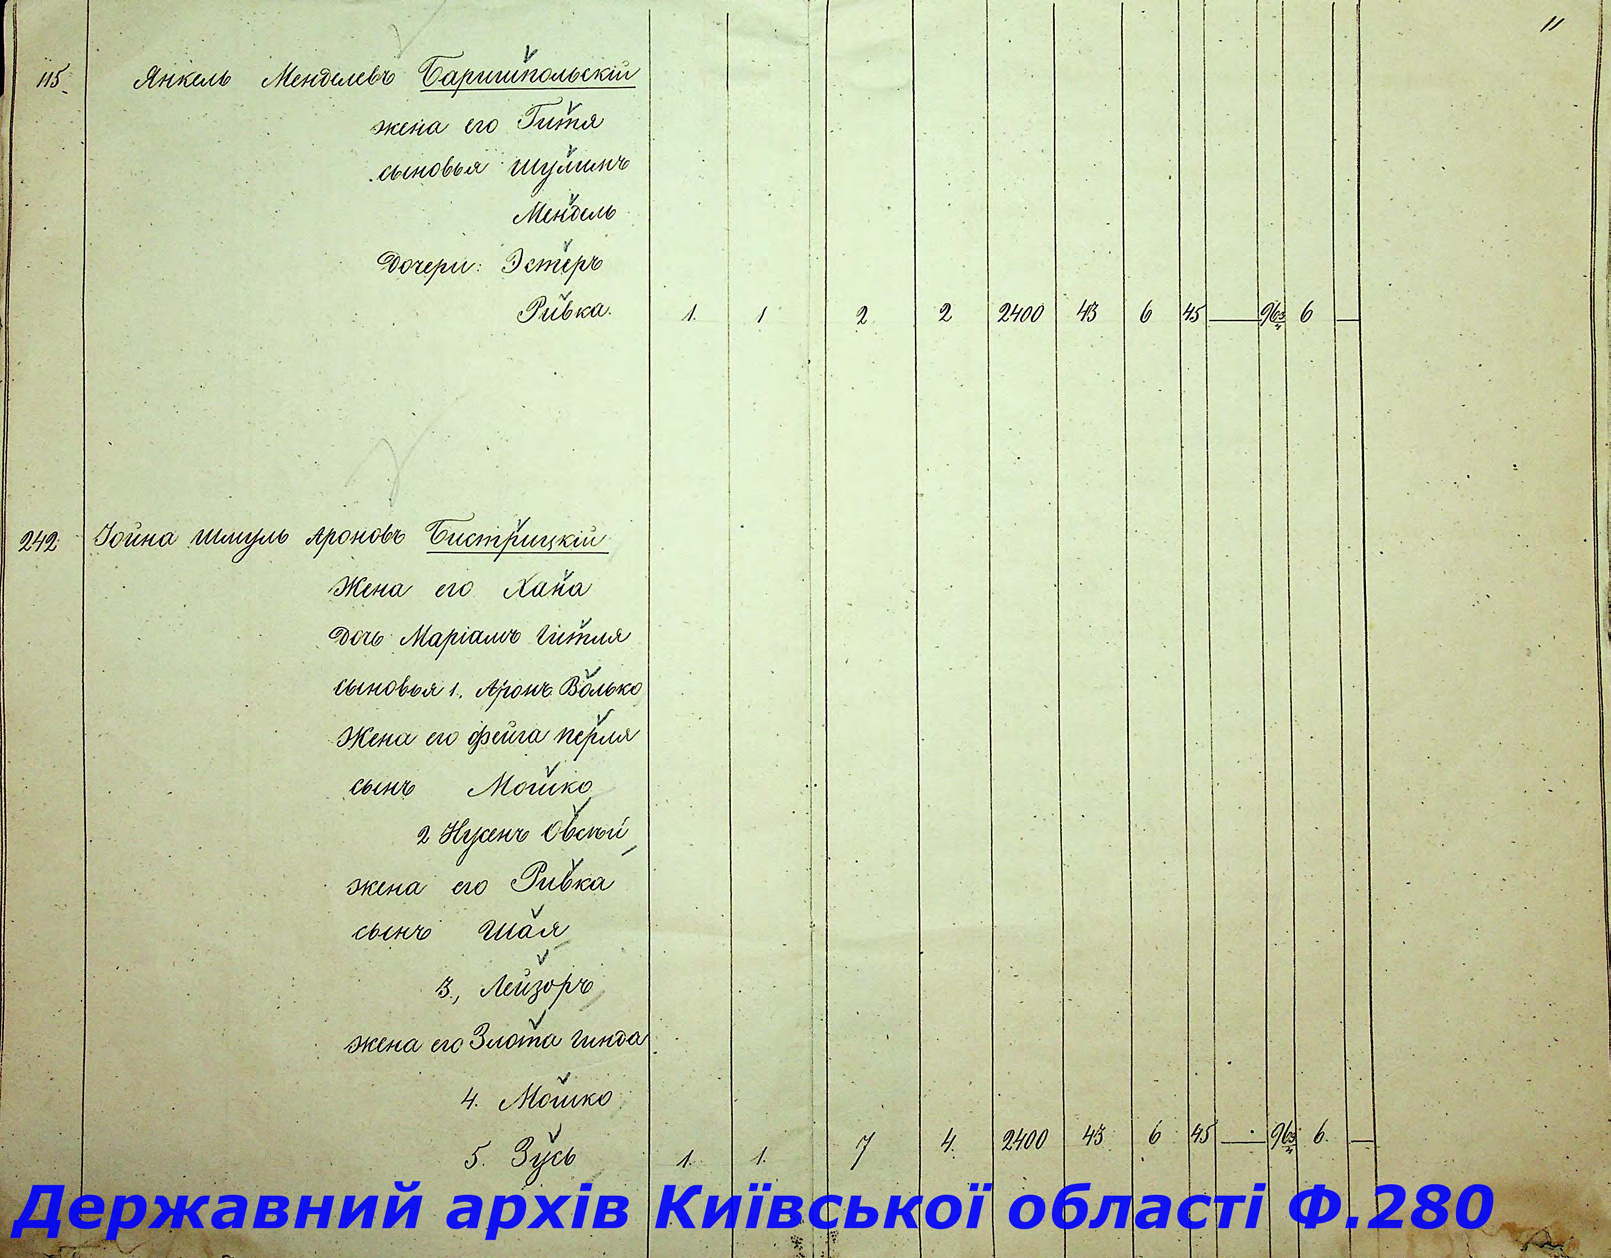 11
115. Янкель Менделевъ Баришпольскій
жена его Гитя
сыновья Шулимъ
Мендель
Дочери: Эстеръ
Ривка. 1. 1 2 2 2400 43 6 45 — 96 6 —
242 Іойна Шмуль Ароновъ Бистрицкій
Жена его Хана
Дочь Маріамъ Гитля
сыновья 1. Аронъ Волько
Жена его Фейга Перля
сынъ Мошко
2 Нусенъ Овсѣй
жена его Ривка
сынъ Шая
3, Лейзоръ
жена его Злота Гинда
4. Мошко
5. Зусь 1. 1. 7 4. 2400 43 6 45 — 96 6. —
Державний архів Київської області Ф.280